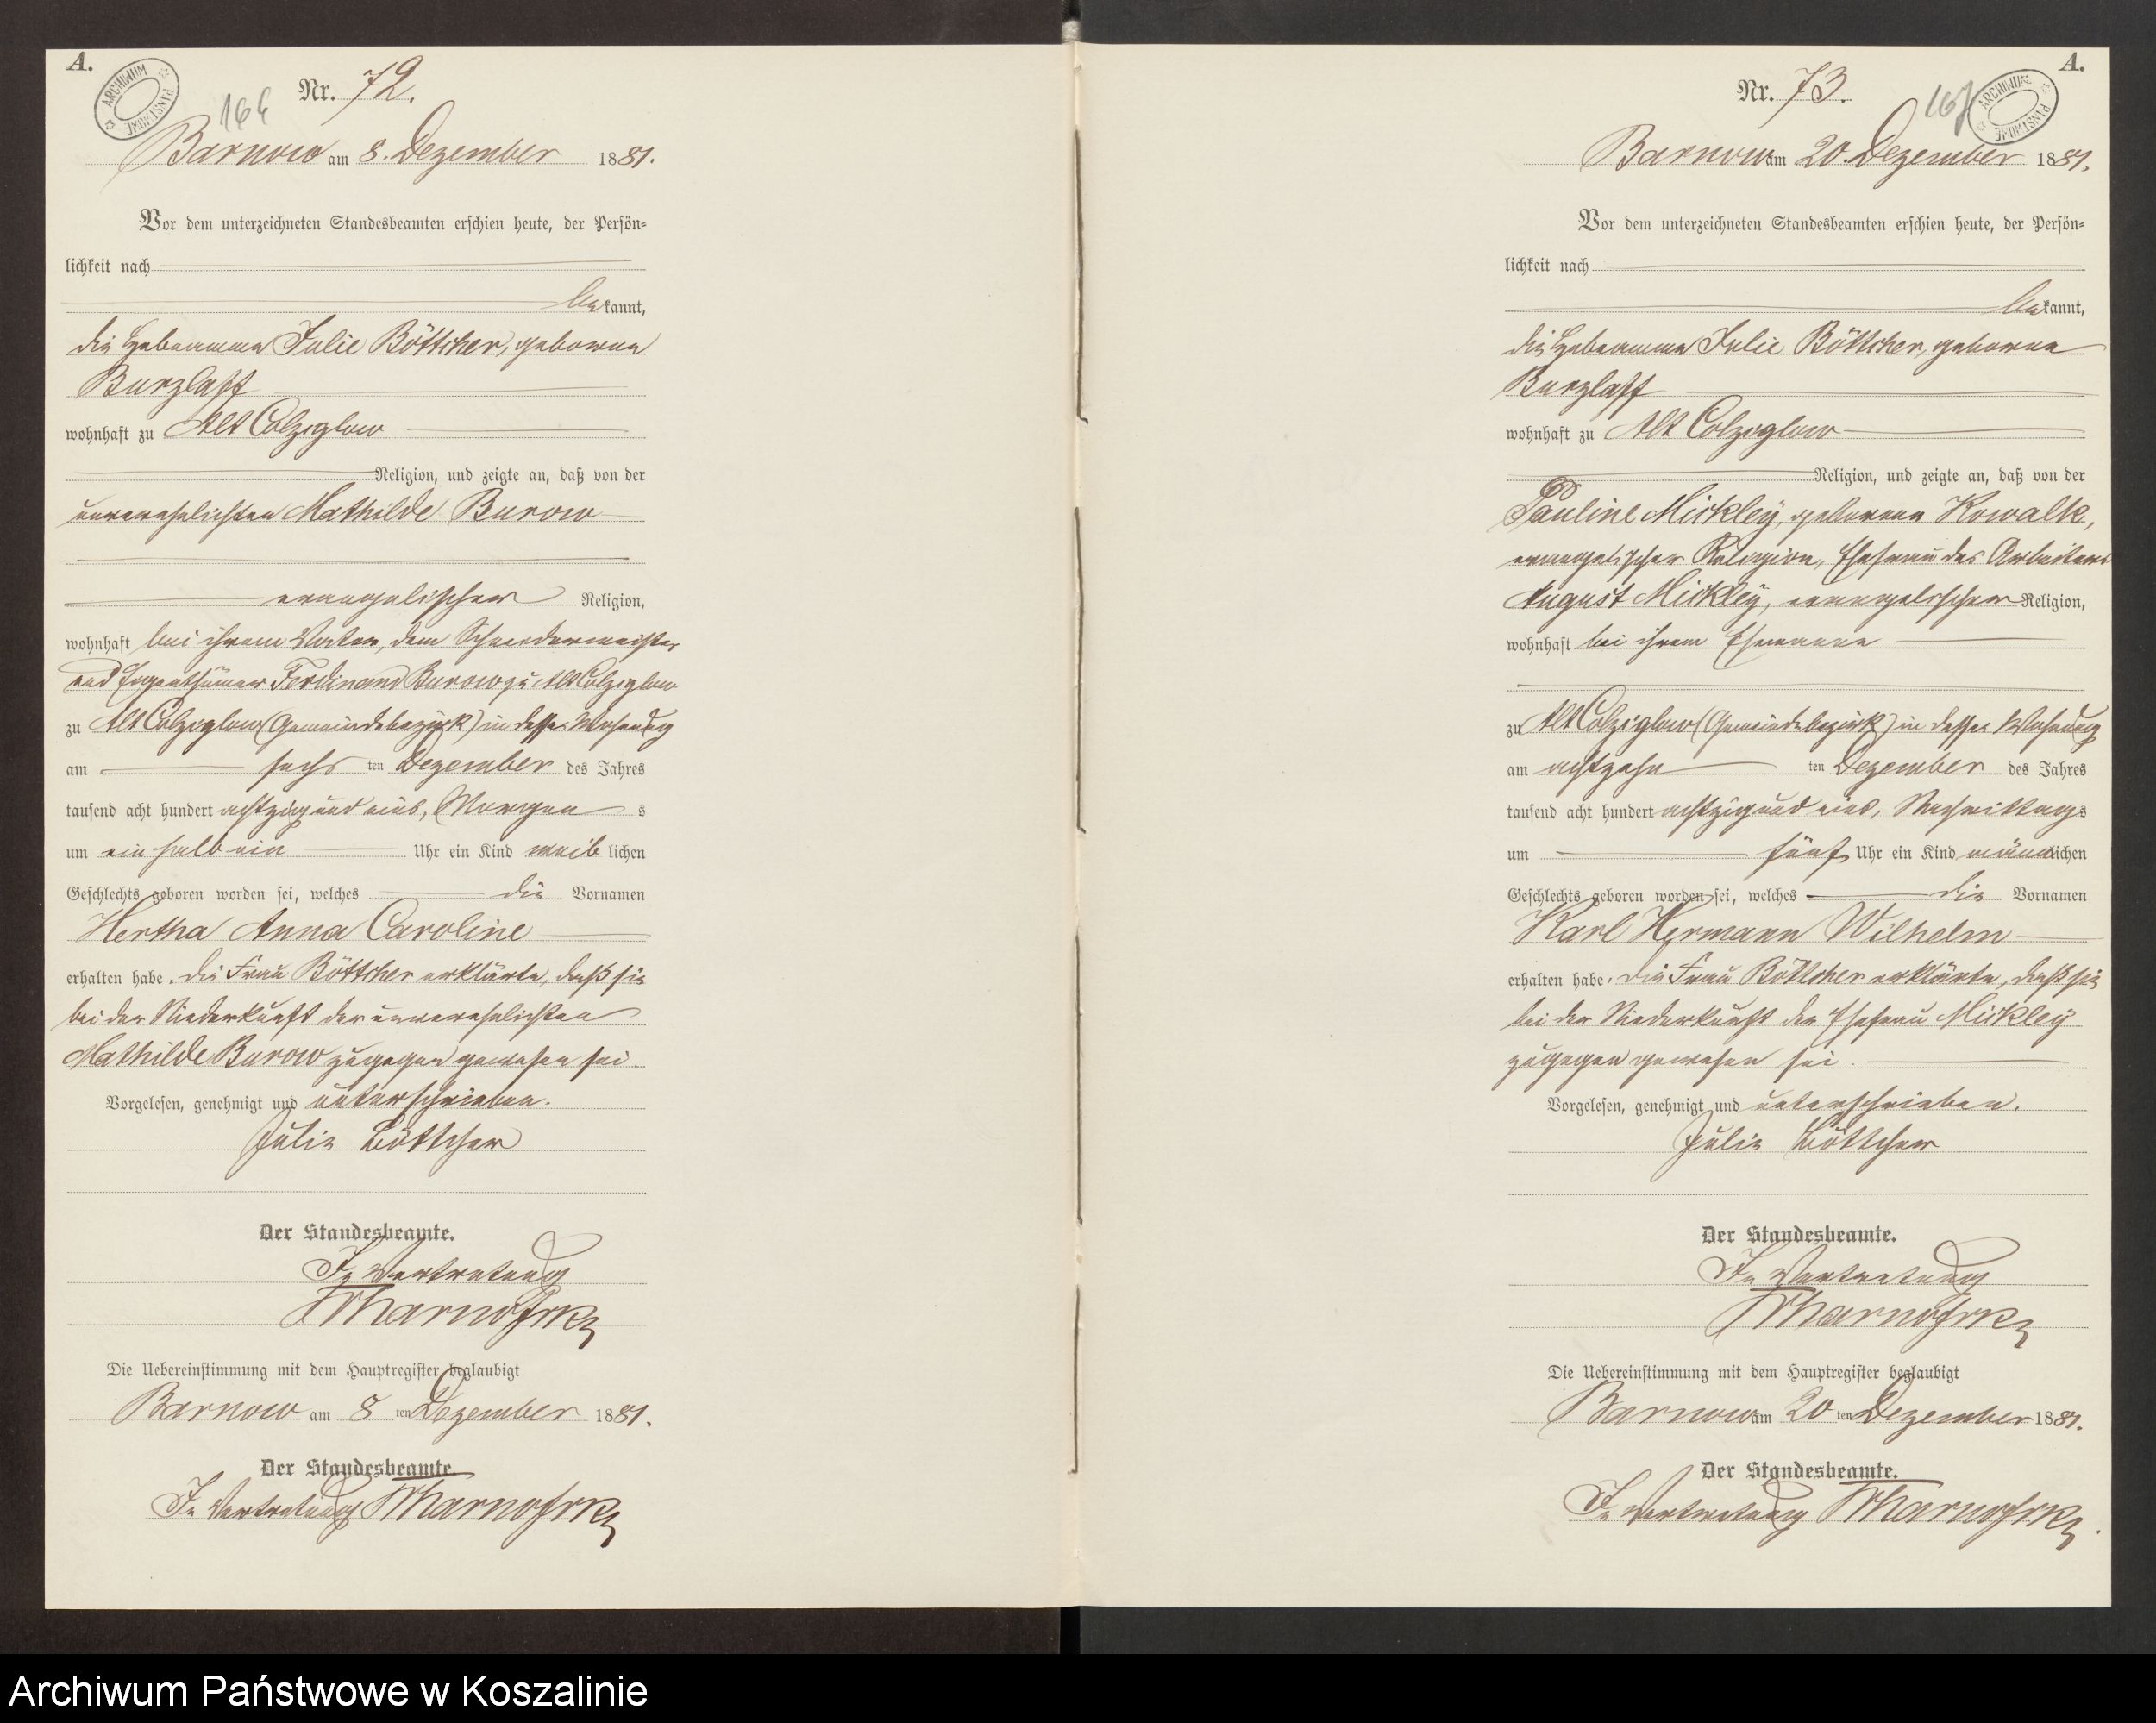 A.
ARCHIWUM PAŃSTWOWE
166
Nr. 72.
Barnow am 8. Dezember 1881.
Vor dem unterzeichneten Standesbeamten erschien heute, der Persön-
lichkeit nach
bekannt,
die Hebeamme Julie Böttcher, geborene
Burzlaff
wohnhaft zu Alt Colziglow
Religion, und zeigte an, daß von der
unverehelichten Mathilde Burow
evangelischer Religion,
wohnhaft bei ihrem Vater, dem Schneidermeister
und Eigenthümer Ferdinand Burow zu Alt Colziglow
zu Alt Colziglow (Gemeindebezirk) in dessen Wohnung
am sechs ten Dezember des Jahres
tausend acht hundert achtzig und eins, Morgens
um ein halb ein Uhr ein Kind weiblichen
Geschlechts geboren worden sei, welches die Vornamen
Hertha Anna Caroline
erhalten habe. Die Frau Böttcher erklärte, daß sie
bei der Niederkunft der unverehelichten
Mathilde Burow zugegen gewesen sei.
Vorgelesen, genehmigt und unterschrieben.
Julie Böttcher
Der Standesbeamte.
In Vertretung
Die Uebereinstimmung mit dem Hauptregister beglaubigt
Barnow am 8 ten Dezember 1881.
Der Standesbeamte.
In Vertretung
A.
ARCHIWUM PAŃSTWOWE
167
Nr. 73.
Barnow am 20. Dezember 1881.
Vor dem unterzeichneten Standesbeamten erschien heute, der Persön-
lichkeit nach
bekannt,
die Hebeamme Julie Böttcher, geborene
Burzlaff
wohnhaft zu Alt Colziglow
Religion, und zeigte an, daß von der
Pauline Mickley, geborenen Kowalk,
evangelischer Religion, Ehefrau des Arbeiters
August Mickley, evangelischer Religion,
wohnhaft bei ihrem Ehemanne
zu Alt Colziglow (Gemeindebezirk) in dessen Wohnung
am achtzehn ten Dezember des Jahres
tausend acht hundert achtzig und eins, Nachmittags
um fünf Uhr ein Kind männlichen
Geschlechts geboren worden sei, welches die Vornamen
Karl Hermann Wilhelm
erhalten habe. Die Frau Böttcher erklärte, daß sie
bei der Niederkunft der Ehefrau Mickley
zugegen gewesen sei.
Vorgelesen, genehmigt und unterschrieben.
Julie Böttcher
Der Standesbeamte.
In Vertretung
Die Uebereinstimmung mit dem Hauptregister beglaubigt
Barnow am 20 ten Dezember 1881.
Der Standesbeamte.
In Vertretung
Archiwum Państwowe w Koszalinie